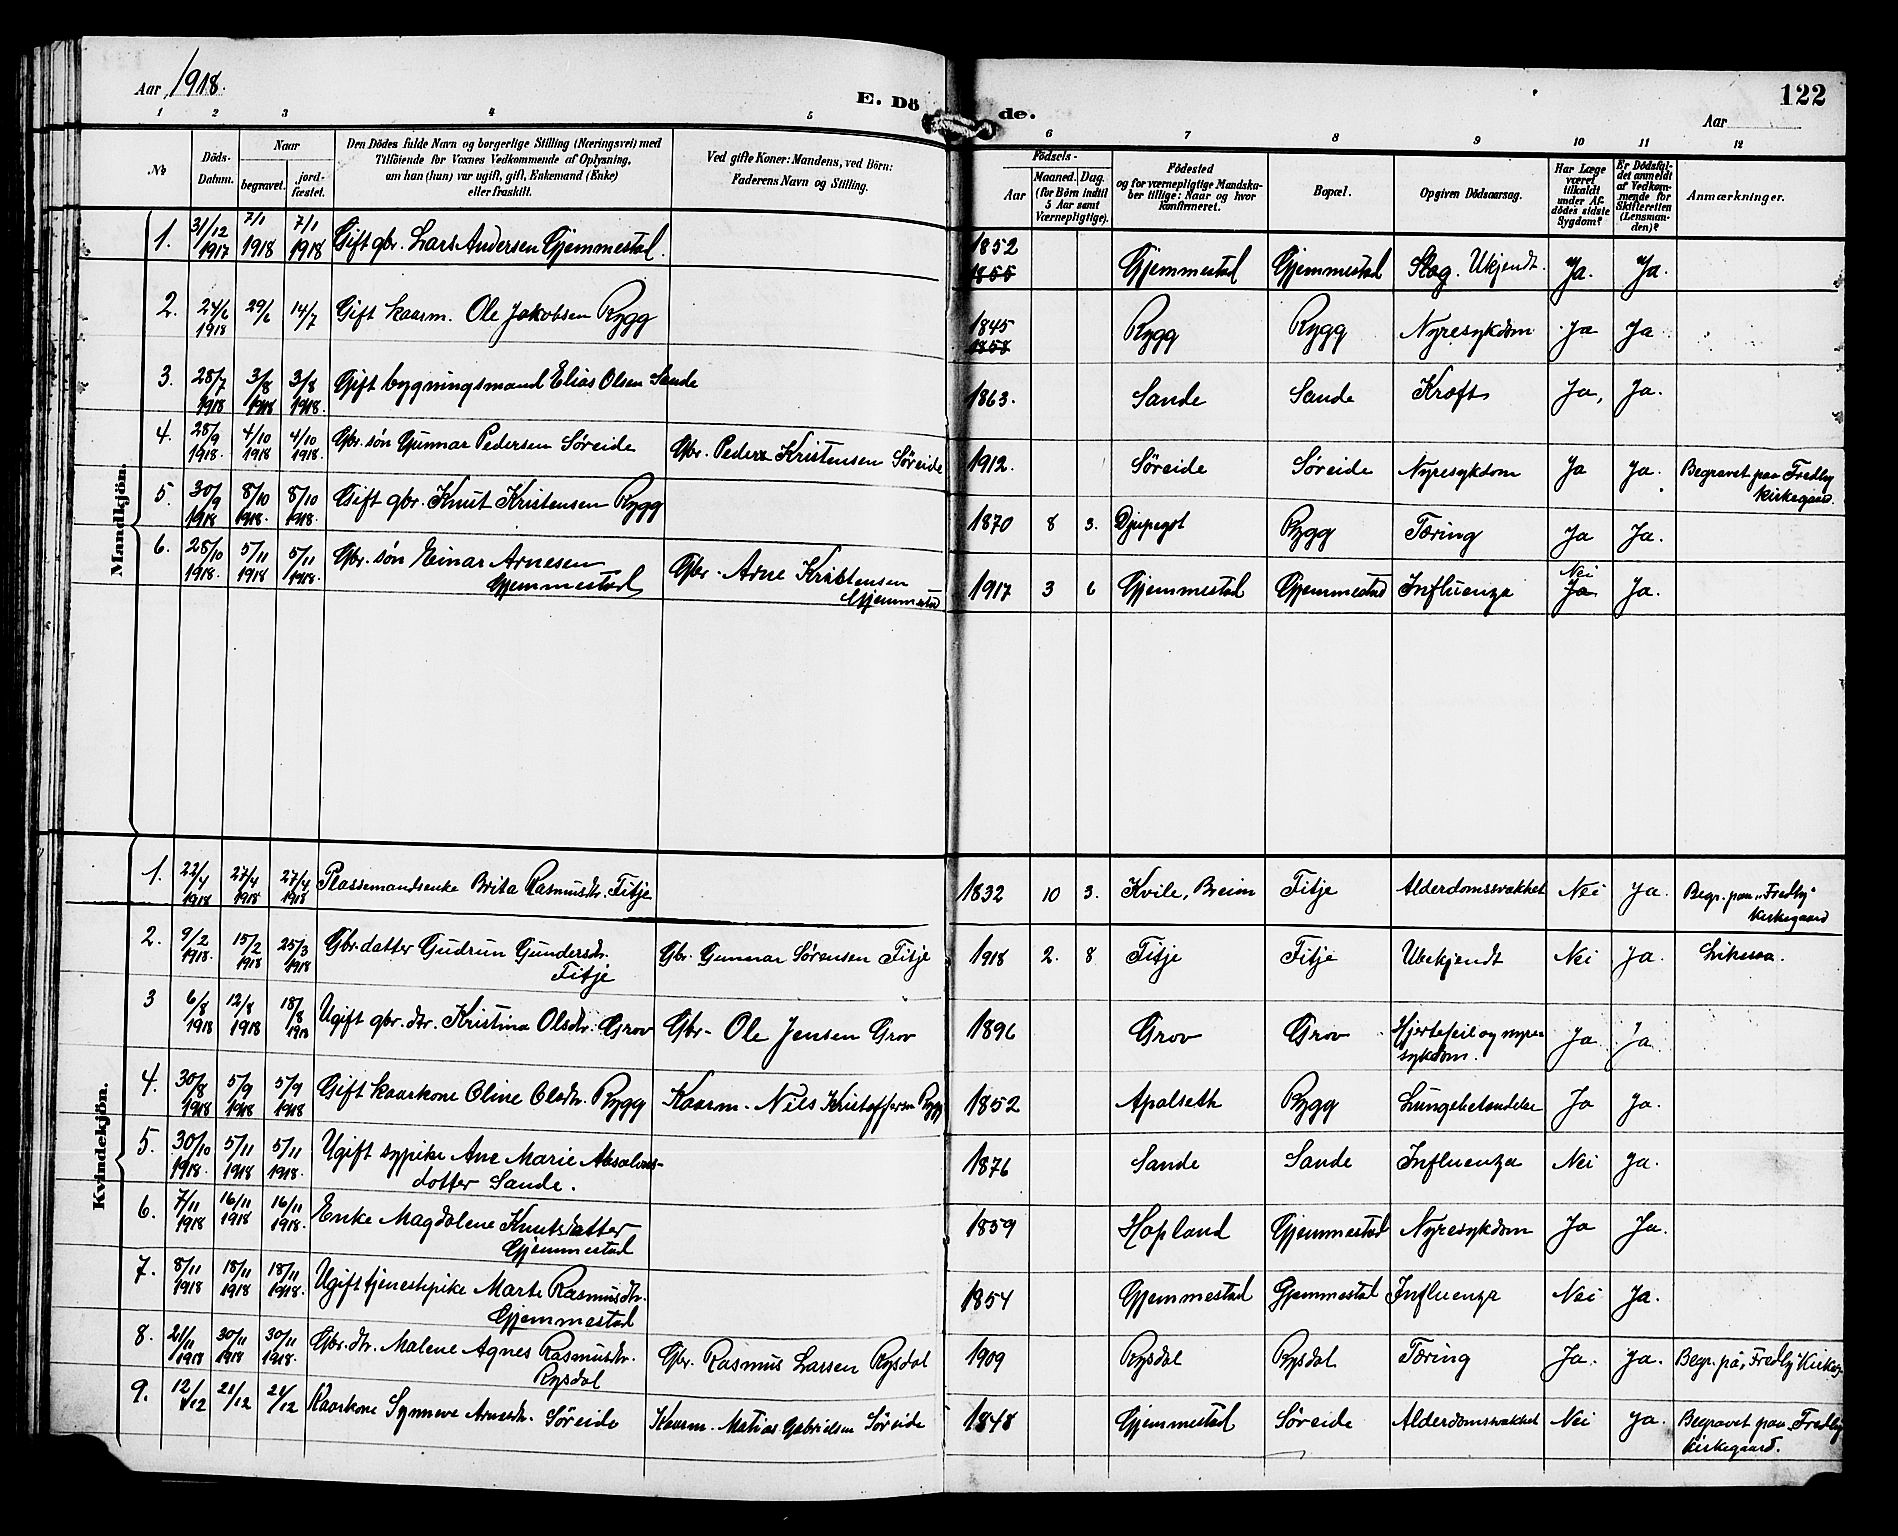 Aar 1918.
E. Döde.
122
Aar
1 2 3 4 5 6 7 8 9 10 11 12
No
Döds-
Datum.
Naar
begravet.
jord-
fæstet.
Den Dödes fulde Navn og borgerlige Stilling (Næringsvei) med
Tilföiende for Voxnes Vedkommende af Oplysning,
om han (hun) var ugift, gift, Enkemand (Enke)
eller fraskilt.
Ved gifte Koner: Mandens, ved Börn:
Faderens Navn og Stilling.
Födsels-
Aar
Maaned.
Dag.
(for Börn indtil
5 Aar samt
Værnepligtige).
Födested
og for værnepligtige Mandska-
ber tillige: Naar og hvor
konfirmeret.
Bopæl.
Opgiven Dödsaarsag.
Har Læge
været
tilkaldt
under Af-
dödes sidste
Sygdom?
Er Dödsfal-
det anmeldt
af Vedkom-
mende for
Skifteretten
(Lensman-
den)?
Anmærkninger.
Mandkjön.
1. 31/12 1917 7/1 1918 7/1 1918 Gift gbr. Lars Andersen Gjemmestad. 1852 1855 Gjemmestad Gjemmestad Slag. Ukjendt. Ja. Ja.
2. 24/6 1918 29/6 14/7 Gift kaarm. Ole Jakobsen Rygg 1845 1858 Rygg Rygg Nyresykdom Ja Ja
3. 28/7 1918 3/8 1918 3/8 1918. Gift bygningsmand Elias Olsen Sande 1863. Sande Sande Kræft Ja, Ja.
4. 28/9 1918. 4/10 1918 4/10 1918. Gbr. søn Gunnar Pedersen Søreide Gbr. Peder Kristensen Søreide 1912. Søreide Søreide Nyresykdom Ja Ja. Begravet paa Fredly
kirkegaard.
5. 30/9 1918 8/10 1918. 8/10 1918. Gift gbr. Knut Kristensen Rygg 1870 8 3. Djupegot Rygg Tæring Ja Ja.
6. 28/10 1918. 5/11 1918 5/11 1918. Gbr. søn Einar Arnesen
Gjemmestad Gbr. Arne Kristensen
Gjemmestad 1917 3 6 Gjemmestad Gjemmestad Influenza Nei Ja Ja.
Kvindekjön.
1. 22/4 1918 27/4 1918 27/4 1918 Plassemandsenke Brita Rasmusdtr. Fitje 1832 10 3. Kvile, Breim Fitje Alderdomssvakhet Nei Ja. Begr. paa "Fredly"
kirkegaard
2. 9/2 1918. 15/2 1918 25/3 1918 Gbr. datter Gudrun Gundersdtr.
Fitje Gbr. Gunnar Sørensen Fitje 1918 2. 8 Fitje Fitje Ubekjendt Nei Ja.
3 6/8 1918 12/8 1918 18/8 1918 Ugift gbr. dtr. Kristina Olsdtr. Grov Gbr. Ole Jensen Grov 1896 Grov Grov Hjertefeil og nyre-
sykdom. Ja Ja
4. 30/8 1918 5/9 1918 5/9 1918 Gift kaarkone Oline Olsdtr. Rygg Kaarm. Nils Kristoffersen Rygg 1852 Apalseth Rygg Lungebetændelse Ja Ja.
5. 30/10 1918. 5/11 1918 5/11 1918. Ugift sypike Ane Marie Absalons-
dotter Sande. 1876 Sande Sande Influenza Nei Ja.
6. 7/11 1918 16/11 1918 16/11 1918. Enke Magdalene Knutsdatter
Gjemmestad 1859 Hopland Gjemmestad Nyresykdom Ja Ja.
7. 8/11 1918 18/11 1918 18/11 1918. Ugift tjenestepike Marte Rasmusdtr.
Gjemmestad 1854 Gjemmestad Gjemmestad Influenza Nei Ja.
8. 21/11 1918 30/11 1918 30/11 1918. Gbr. dtr. Malene Agnes Rasmusdtr.
Rysdal Gbr. Rasmus Larsen Rysdal 1909 Rysdal Rysdal Tæring Ja. Ja. Begr. på "Fredly" Kirkeg.
9. 12/12 21/12 21/12 Kaarkone Synneve Arnesdtr. Søreide Kaarm. Matias Gabrielsen Søreide 1848 Gjemmestad Søreide Alderdomssvakhet Nei Ja. Begravet paa Fredly
kirkegaard.